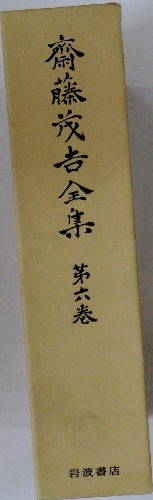 齋藤茂吉全集
第六巻
岩波書店